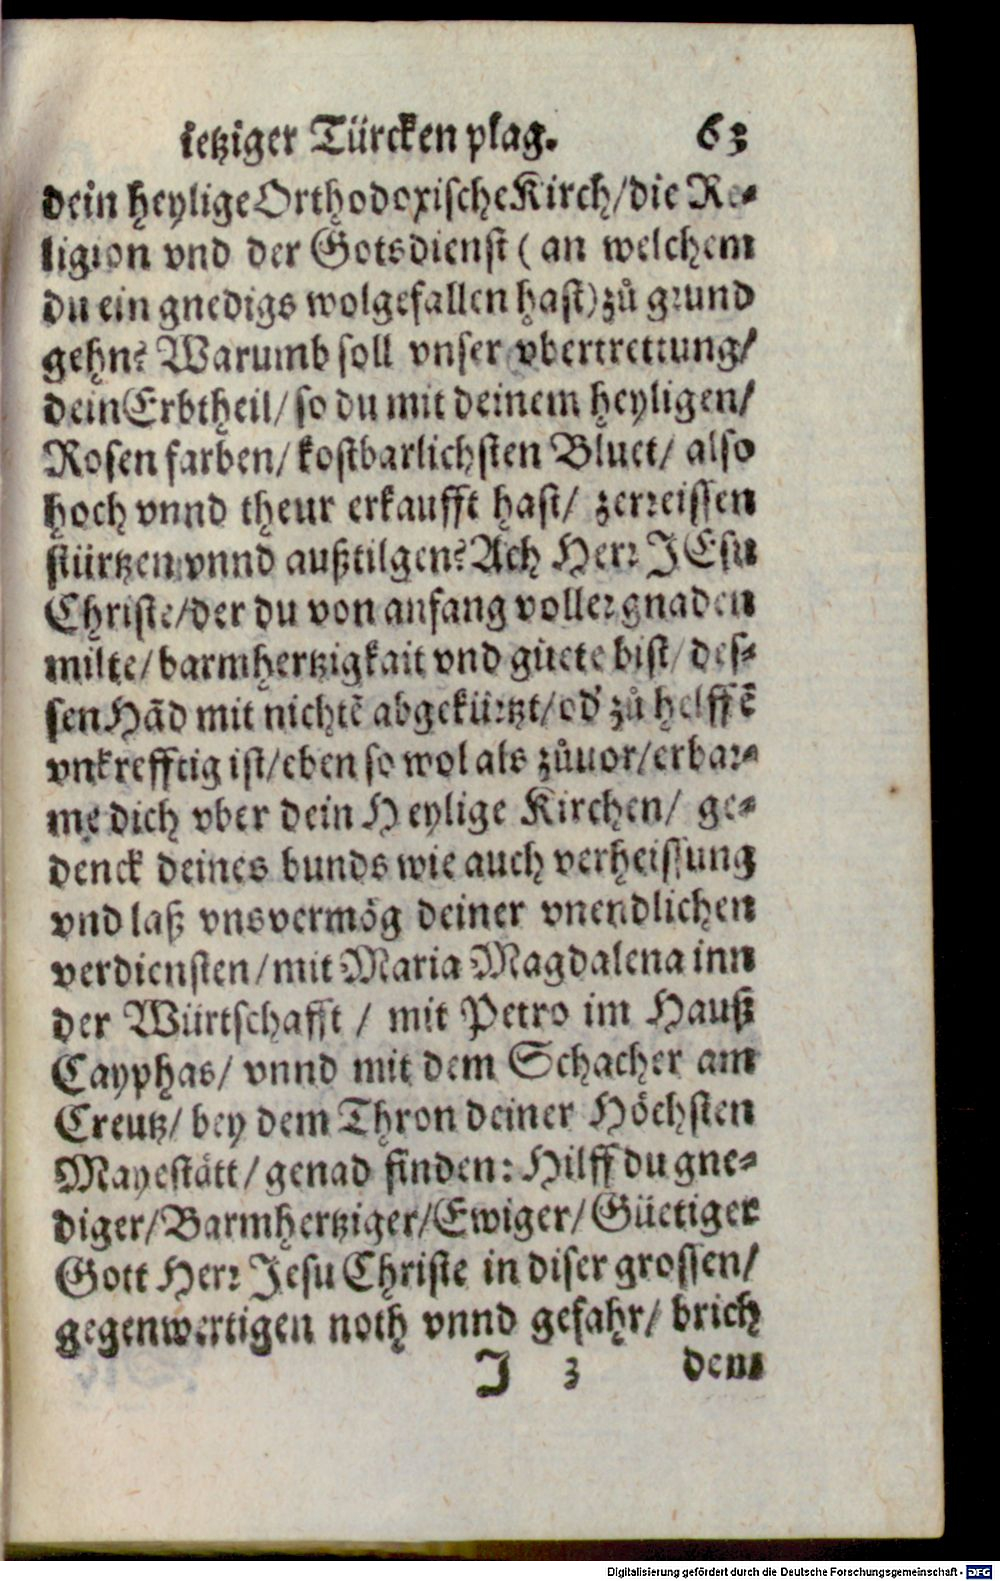 ietziger Türcken plag. 63
dein heylige Orthodoxische Kirch/die Re-
ligion vnd der Gotsdienst (an welchem
du ein gnedigs wolgefallen hast) zů grund
gehn? Warumb soll vnser vbertrettung/
dein Erbtheil/ so du mit deinem heyligen/
Rosen farben/ kostbarlichsten Bluet/ also
hoch vnnd theur erkaufft hast/ zerreissen
stürtzen vnnd außtilgen? Ach Herr JEsu
Christe/der du von anfang voller gnaden
milte/ barmhertzigkait vnd güete bist/ des-
sen Hãd mit nichtẽ abgekürtzt/od' zů helffẽ
vnkrefftig ist/eben so wol als zůuor/erbar-
me dich vber dein Heylige Kirchen/ ge-
denck deines bunds wie auch verheissung
vnd laß vns vermög deiner vnendlichen
verdiensten/mit Maria Magdalena inn
der Würtschafft / mit Petro im Hauß
Cayphas/ vnnd mit dem Schacher am
Creutz/ bey dem Thron deiner Höchsten
Mayestätt/ genad finden: Hilff du gne-
diger/Barmhertziger/Ewiger/ Güetiger
Gott Herr Jesu Christe in diser grossen/
gegenwertigen noth vnnd gefahr/ brich
J 3 den
Digitalisierung gefördert durch die Deutsche Forschungsgemeinschaft - DFG